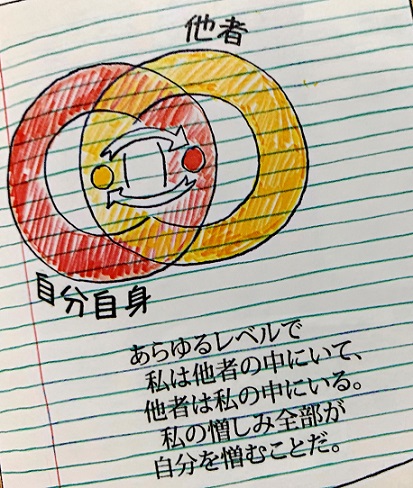 他者
自分自身
あらゆるレベルで
私は他者の中にいて、
他者は私の中にいる。
私の憎しみ全部が
自分を憎むことだ。